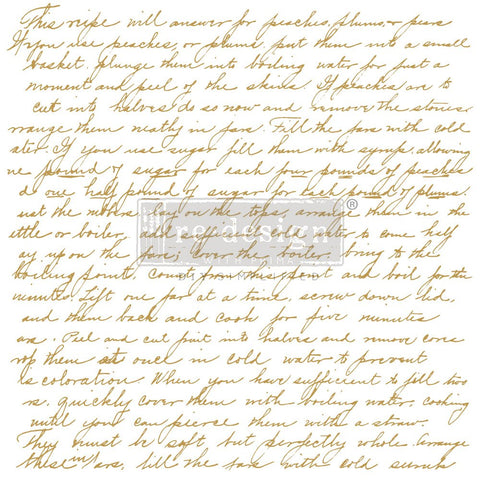 This recipe will answer for peaches, plums, or pears
If you use peaches, or plums, put them into a small
basket, plunge them into boiling water for just a
moment and peel of the skins. If peaches are to
cut into halves do so now and remove the stones.
rrange them neatly in jars. Fill the jars with cold
ater. If you use sugar fill them with syrup, allowing
ne pound of sugar for each four pounds of peaches
d one half pound of sugar for each pound of plums.
ust the rubbers, lay on the tops, arrange them in the
ettle or boiler, add sufficient cold water to come half
ay up on the jars; Cover the boiler, bring to the
boiling point. Count from this point and boil for ten
minutes. Lift one jar at a time, screw down lid,
and them back and cook for five minutes
ars. Peel and cut fruit into halves and remove cores
rop them at once in cold water to prevent
is coloration When you have sufficient to fill two
rs, quickly cover them with boiling water, cooking
until you can pierce them with a straw.
They must be soft but perfectly whole. Arrange
these in jars, fill the jars with cold
re·design®